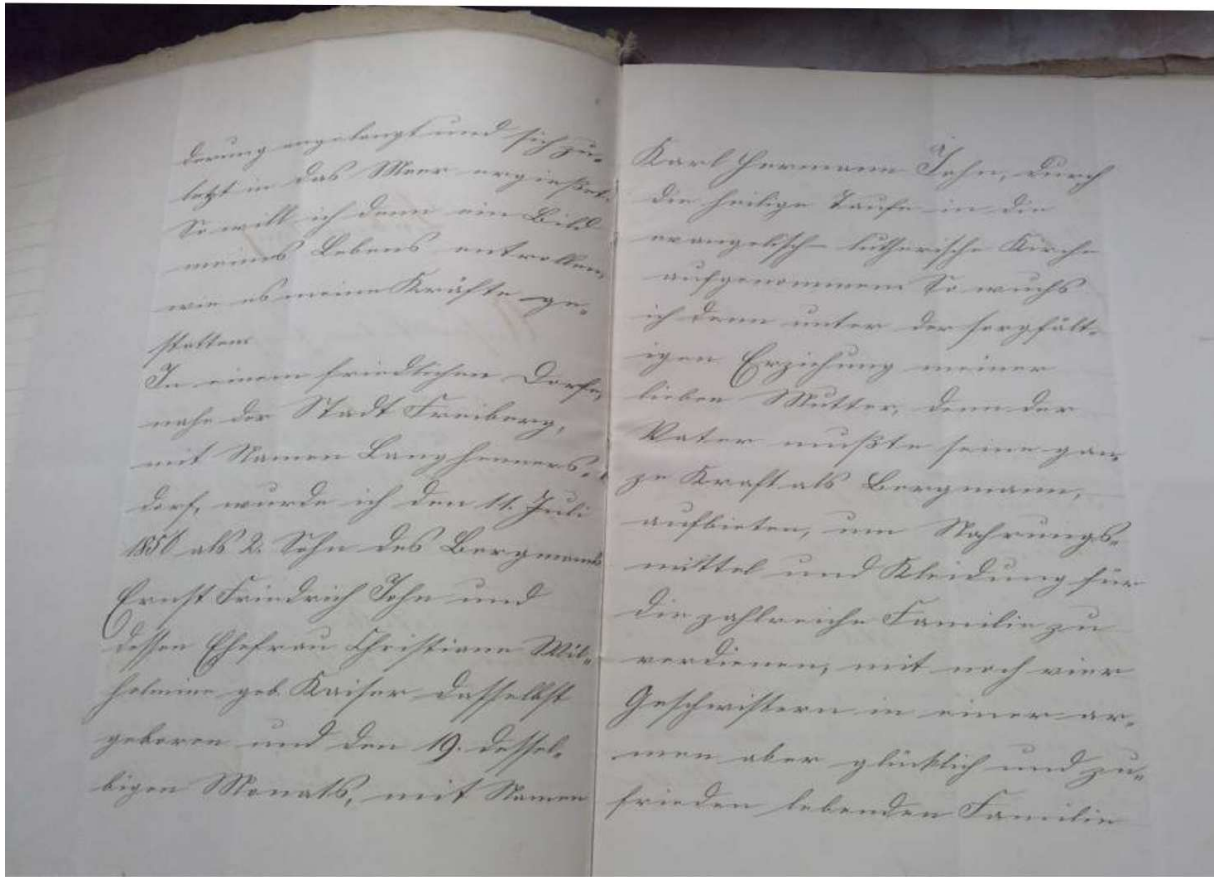 derung angelangt und sich zu-
letzt in das Meer ergießet.
So will ich denn ein Bild
meines Lebens entrollen,
wie es meine Kräfte ge-
statten.
In einem friedlichen Dorfe,
nahe der Stadt Freiberg,
mit Namen Langhenners-
dorf, wurde ich den 11. Juli
1850 als 2. Sohn des Bergmanns
Ernst Friedrich John und
dessen Ehefrau Christiane Wil-
helmine geb. Kaiser dasselbst
geboren und den 19. dessel-
bigen Monats, mit Namen
Karl Hermann John, durch
die heilige Taufe in die
evangelisch-lutherische Kirche
aufgenommen. So wuchs
ich denn unter der sorgfält-
igen Erziehung meiner
lieben Mutter, denn der
Vater mußte seine gan-
ze Kraft als Bergmann,
aufbieten, um Nahrungs-
mittel und Kleidung für
die zahlreiche Familie zu
verdienen, mit noch vier
Geschwistern in einer ar-
men aber glücklich und zu-
frieden lebenden Familie